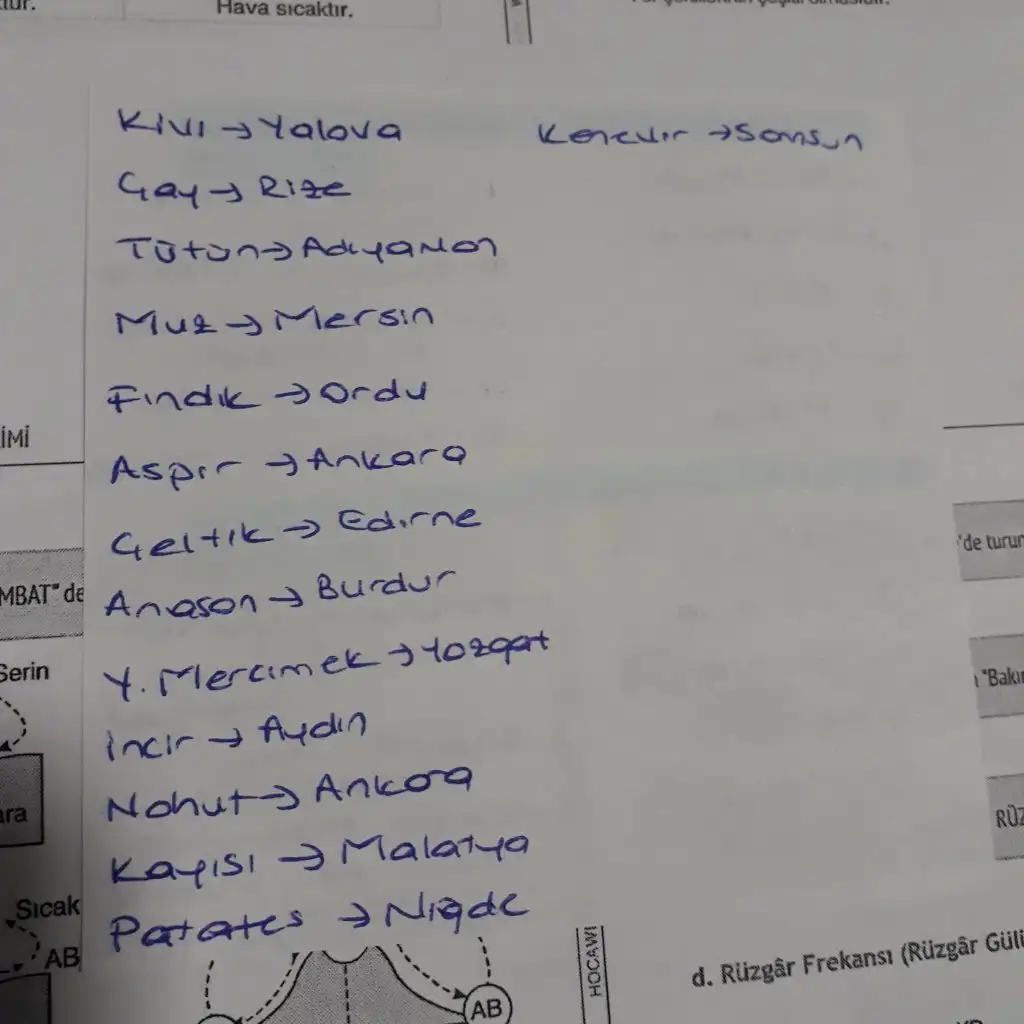 Hava sıcaktır.
Kivi → Yalova
Kenevir → Samsun
Çay → Rize
Tütün → Adıyaman
Muz → Mersin
Fındık → Ordu
Aspir → Ankara
İMİ
Çeltik → Edirne
'de turun
MBAT" de
Anason → Burdur
Serin
Y. Mercimek → Yozgat
"Bakır
İncir → Aydın
Nohut → Ankara
ara
RÜZ
Kayısı → Malatya
Sıcak
Patates → Niğde
AB
HOCAWI
d. Rüzgâr Frekansı (Rüzgâr Gülü
AB